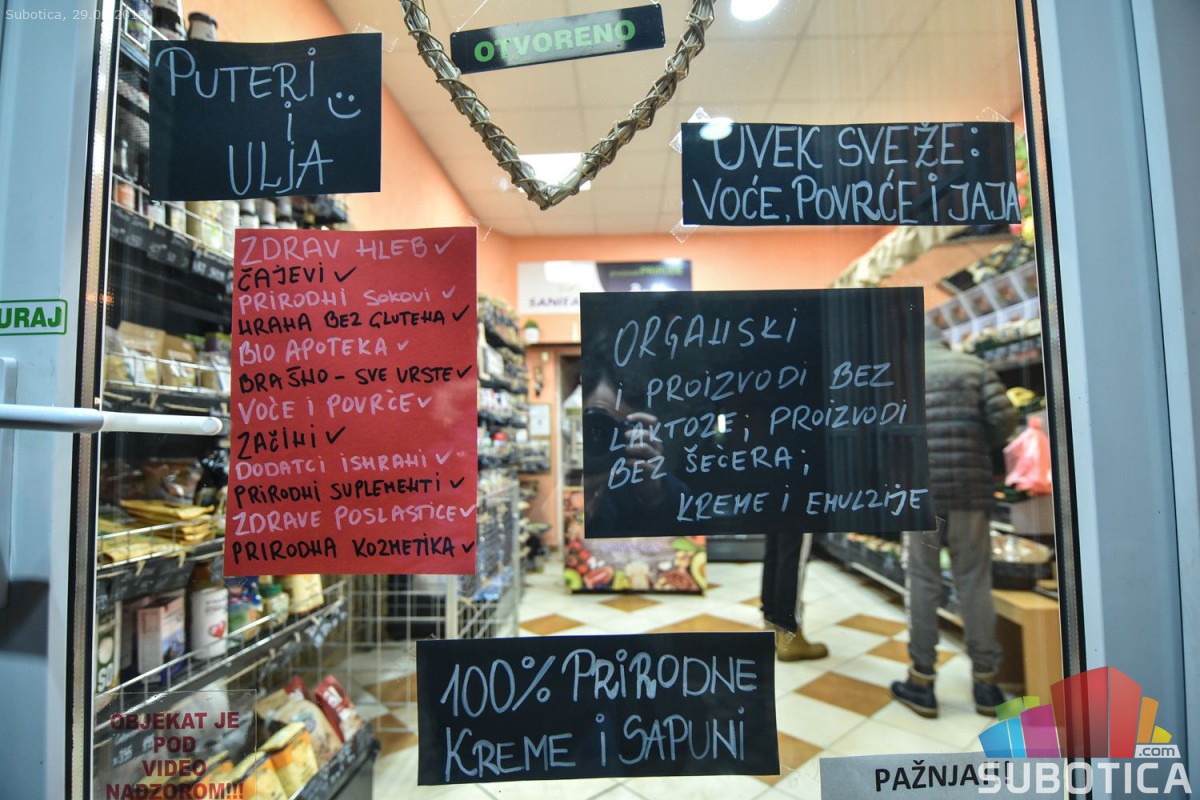 Subotica, 29.0
OTVORENO
PUTERI
i
ULJA
UVEK SVEŽE:
VOĆE, POVRĆE I JAJA
ZDRAV HLEB ✓
ČAJEVI ✓
PRIRODNI SOKOVI ✓
HRANA BEZ GLUTENA ✓
BIO APOTEKA ✓
BRAŠNO - SVE VRSTE ✓
VOĆE I POVRĆE ✓
ZAČINI ✓
DODATCI ISHRANI ✓
PRIRODNI SUPLEMENTI ✓
ZDRAVE POSLASTICE ✓
PRIRODNA KOZMETIKA ✓
URAJ
SANITA
ORGANSKI
I PROIZVODI BEZ
LAKTOZE; PROIZVODI
BEZ ŠEĆERA;
KREME I EMULZIJE
100% PRIRODNE
KREME I SAPUNI
OBJEKAT JE
POD
VIDEO
NADZOROM!!!
PAŽNJA!!
SUBOTICA
.com